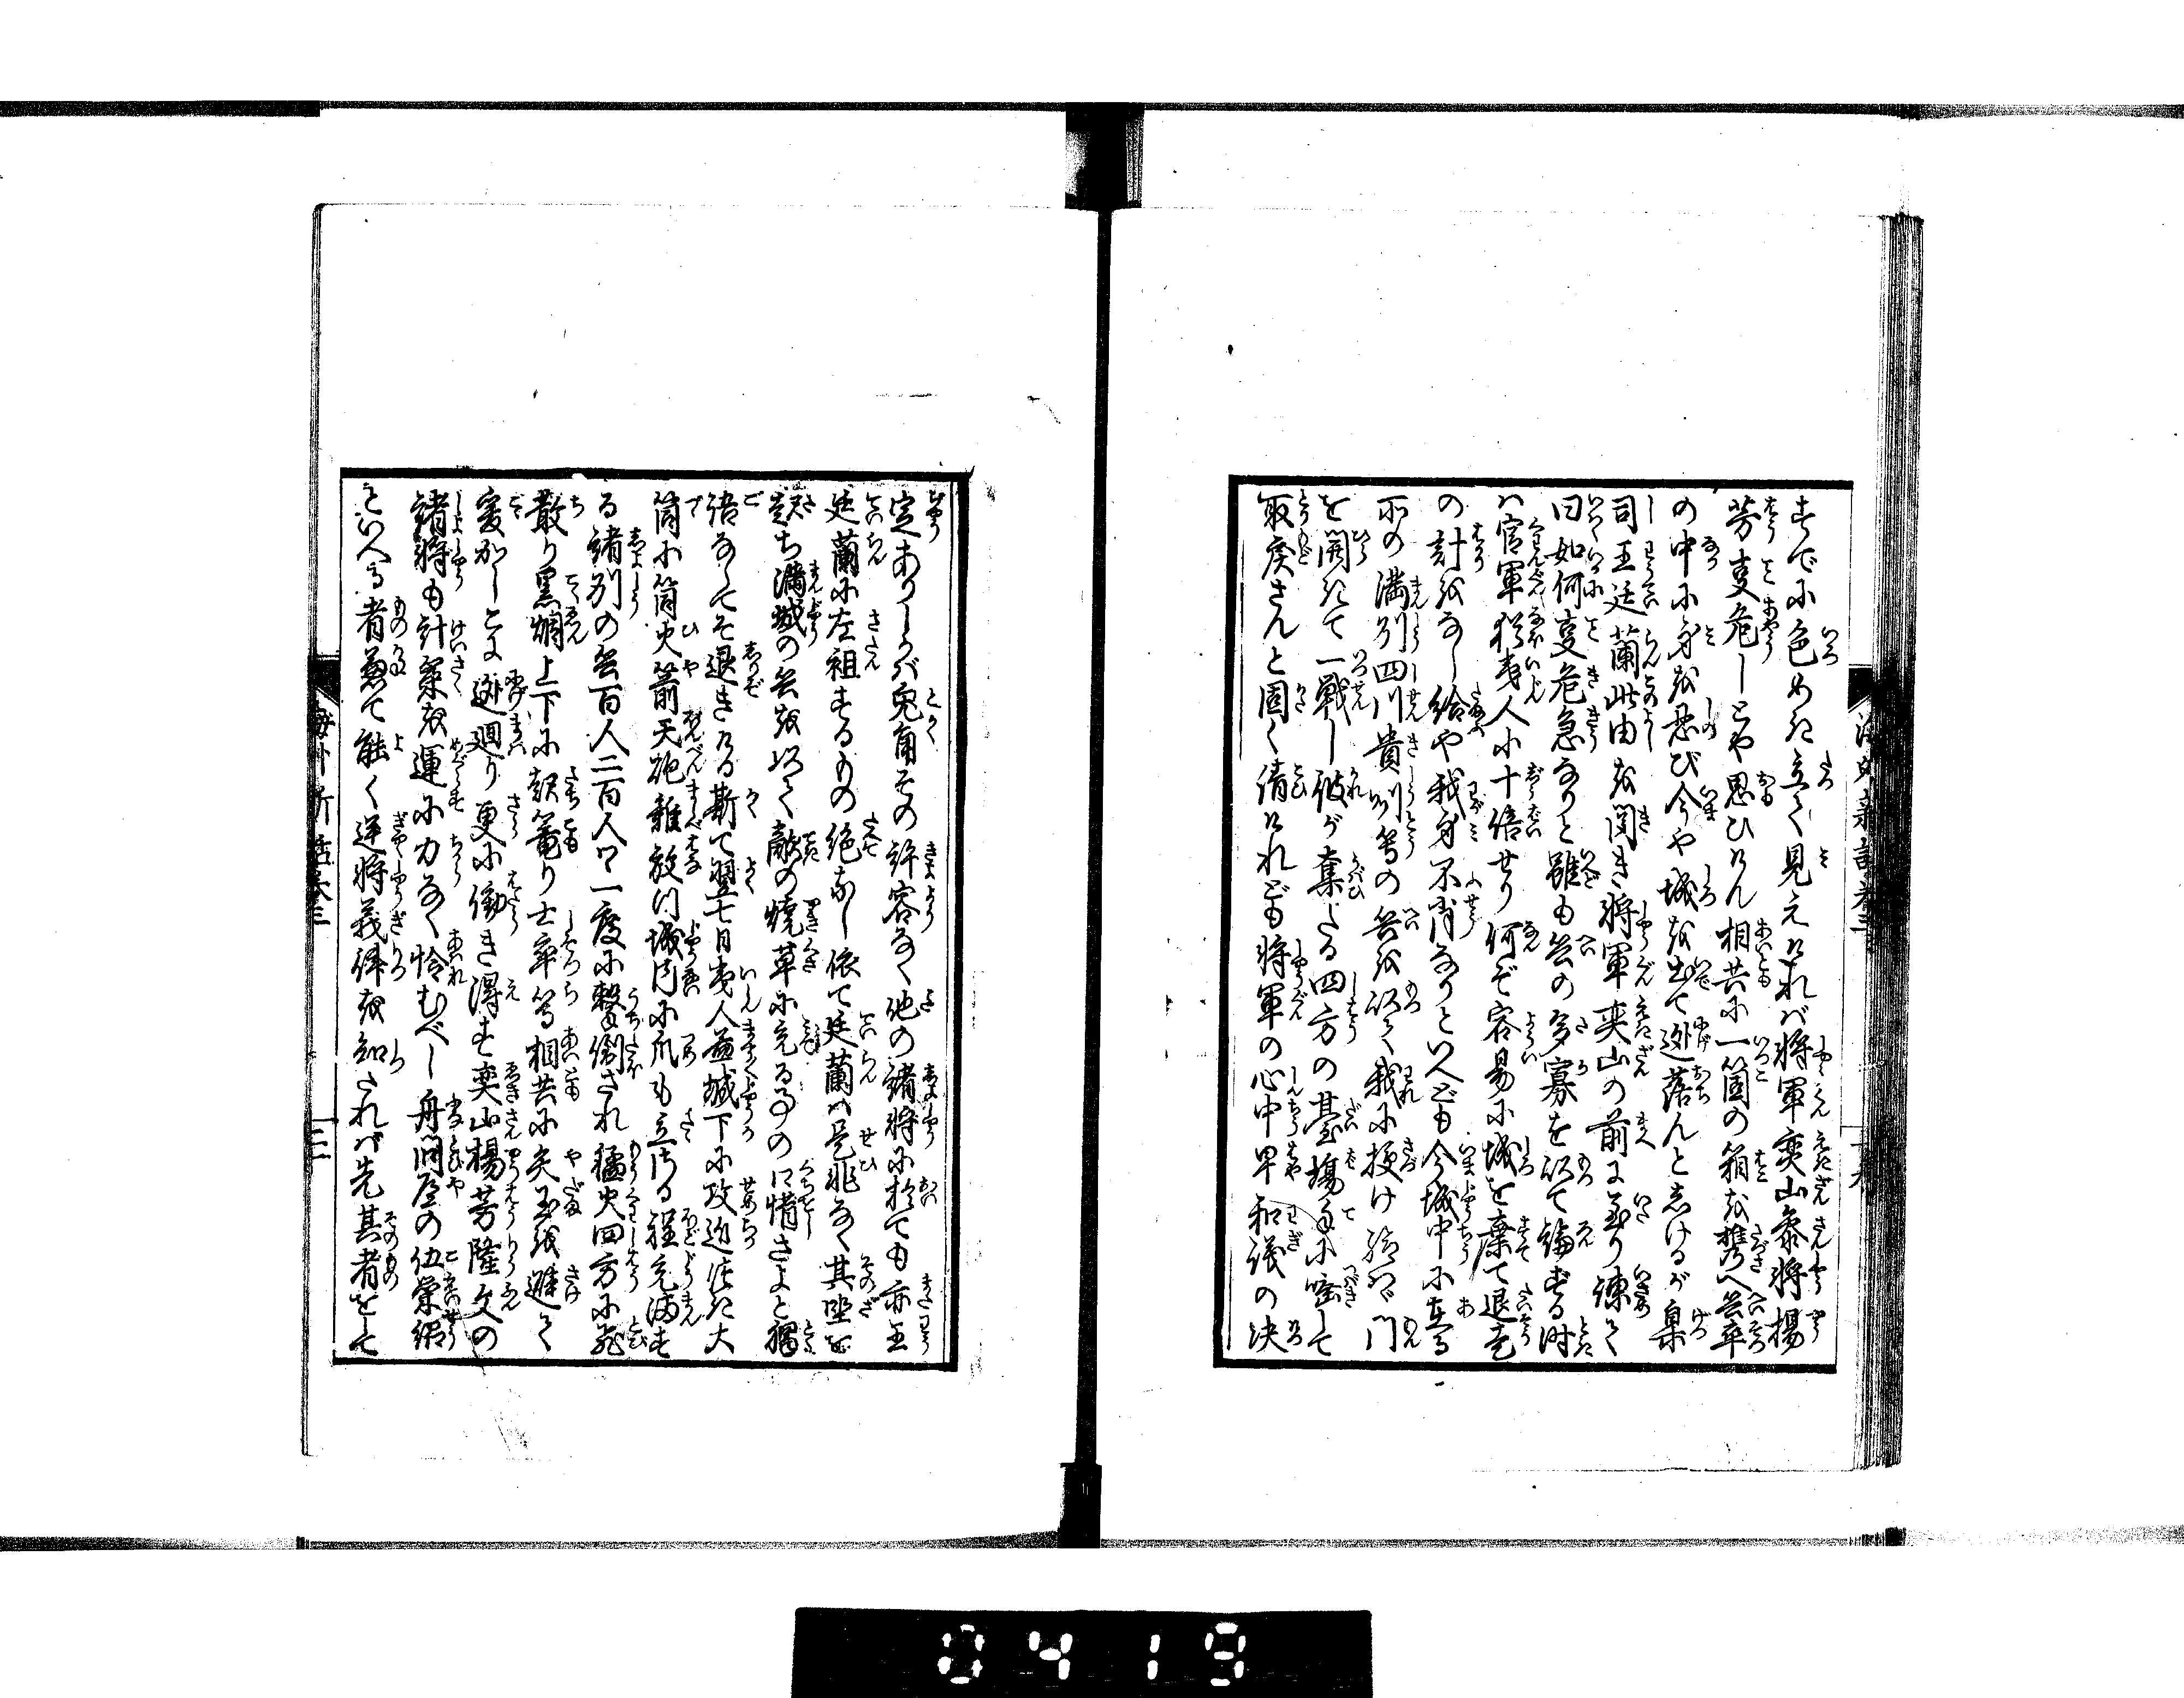 すでに色めき立て見えければ将軍奕山参将楊
芳事危しとや思ひけん相共に一箇の箱を携へ兵卒
の中に身を忍び今や城を出て迯落んとしけるが臬
司王廷蘭此由を聞き将軍奕山の前に至り諫て
曰如何事危急なりと雖も兵の多寡を以て論ずる時
は官軍猶夷人に十倍せり何ぞ容易に城を棄て退走
の計をなし給や我身不肖なりといへども今城中に在る
所の満州四川貴州等の兵を以て我に授け給はゞ門
を開きて一戦し彼が奪たる四方の臺場を手に唾して
取戻さんと固く請けれども将軍の心中早和議の決
定ありしかば兎角その許容なく他の諸将に於ても亦王
廷蘭に左袒するもの絶なし依て廷蘭は是非なく其坐を
起ち満城の兵を以て敵の焼草に充る事の口惜さよと獨
語なしてぞ退きける斯て翌七日夷人益城下に攻近づき大
筒小筒火箭天砲雑放門城内に爪も立ざる程充満す
る諸州の兵百人二百人づゝ一度に撃倒され猛火四方に飛
散り黒烟上下に立籠り士卒等相共に矢玉を避て
爰かしこに迯廻り更に働き得ず奕山楊芳隆文の
諸将も計策を運に力なく怜むべし舟問屋の伍榮紹
といへる者兼て能く逆将義律を知されば先其者をして
海外新話巻三
十九
海外新話巻三
二二
0419